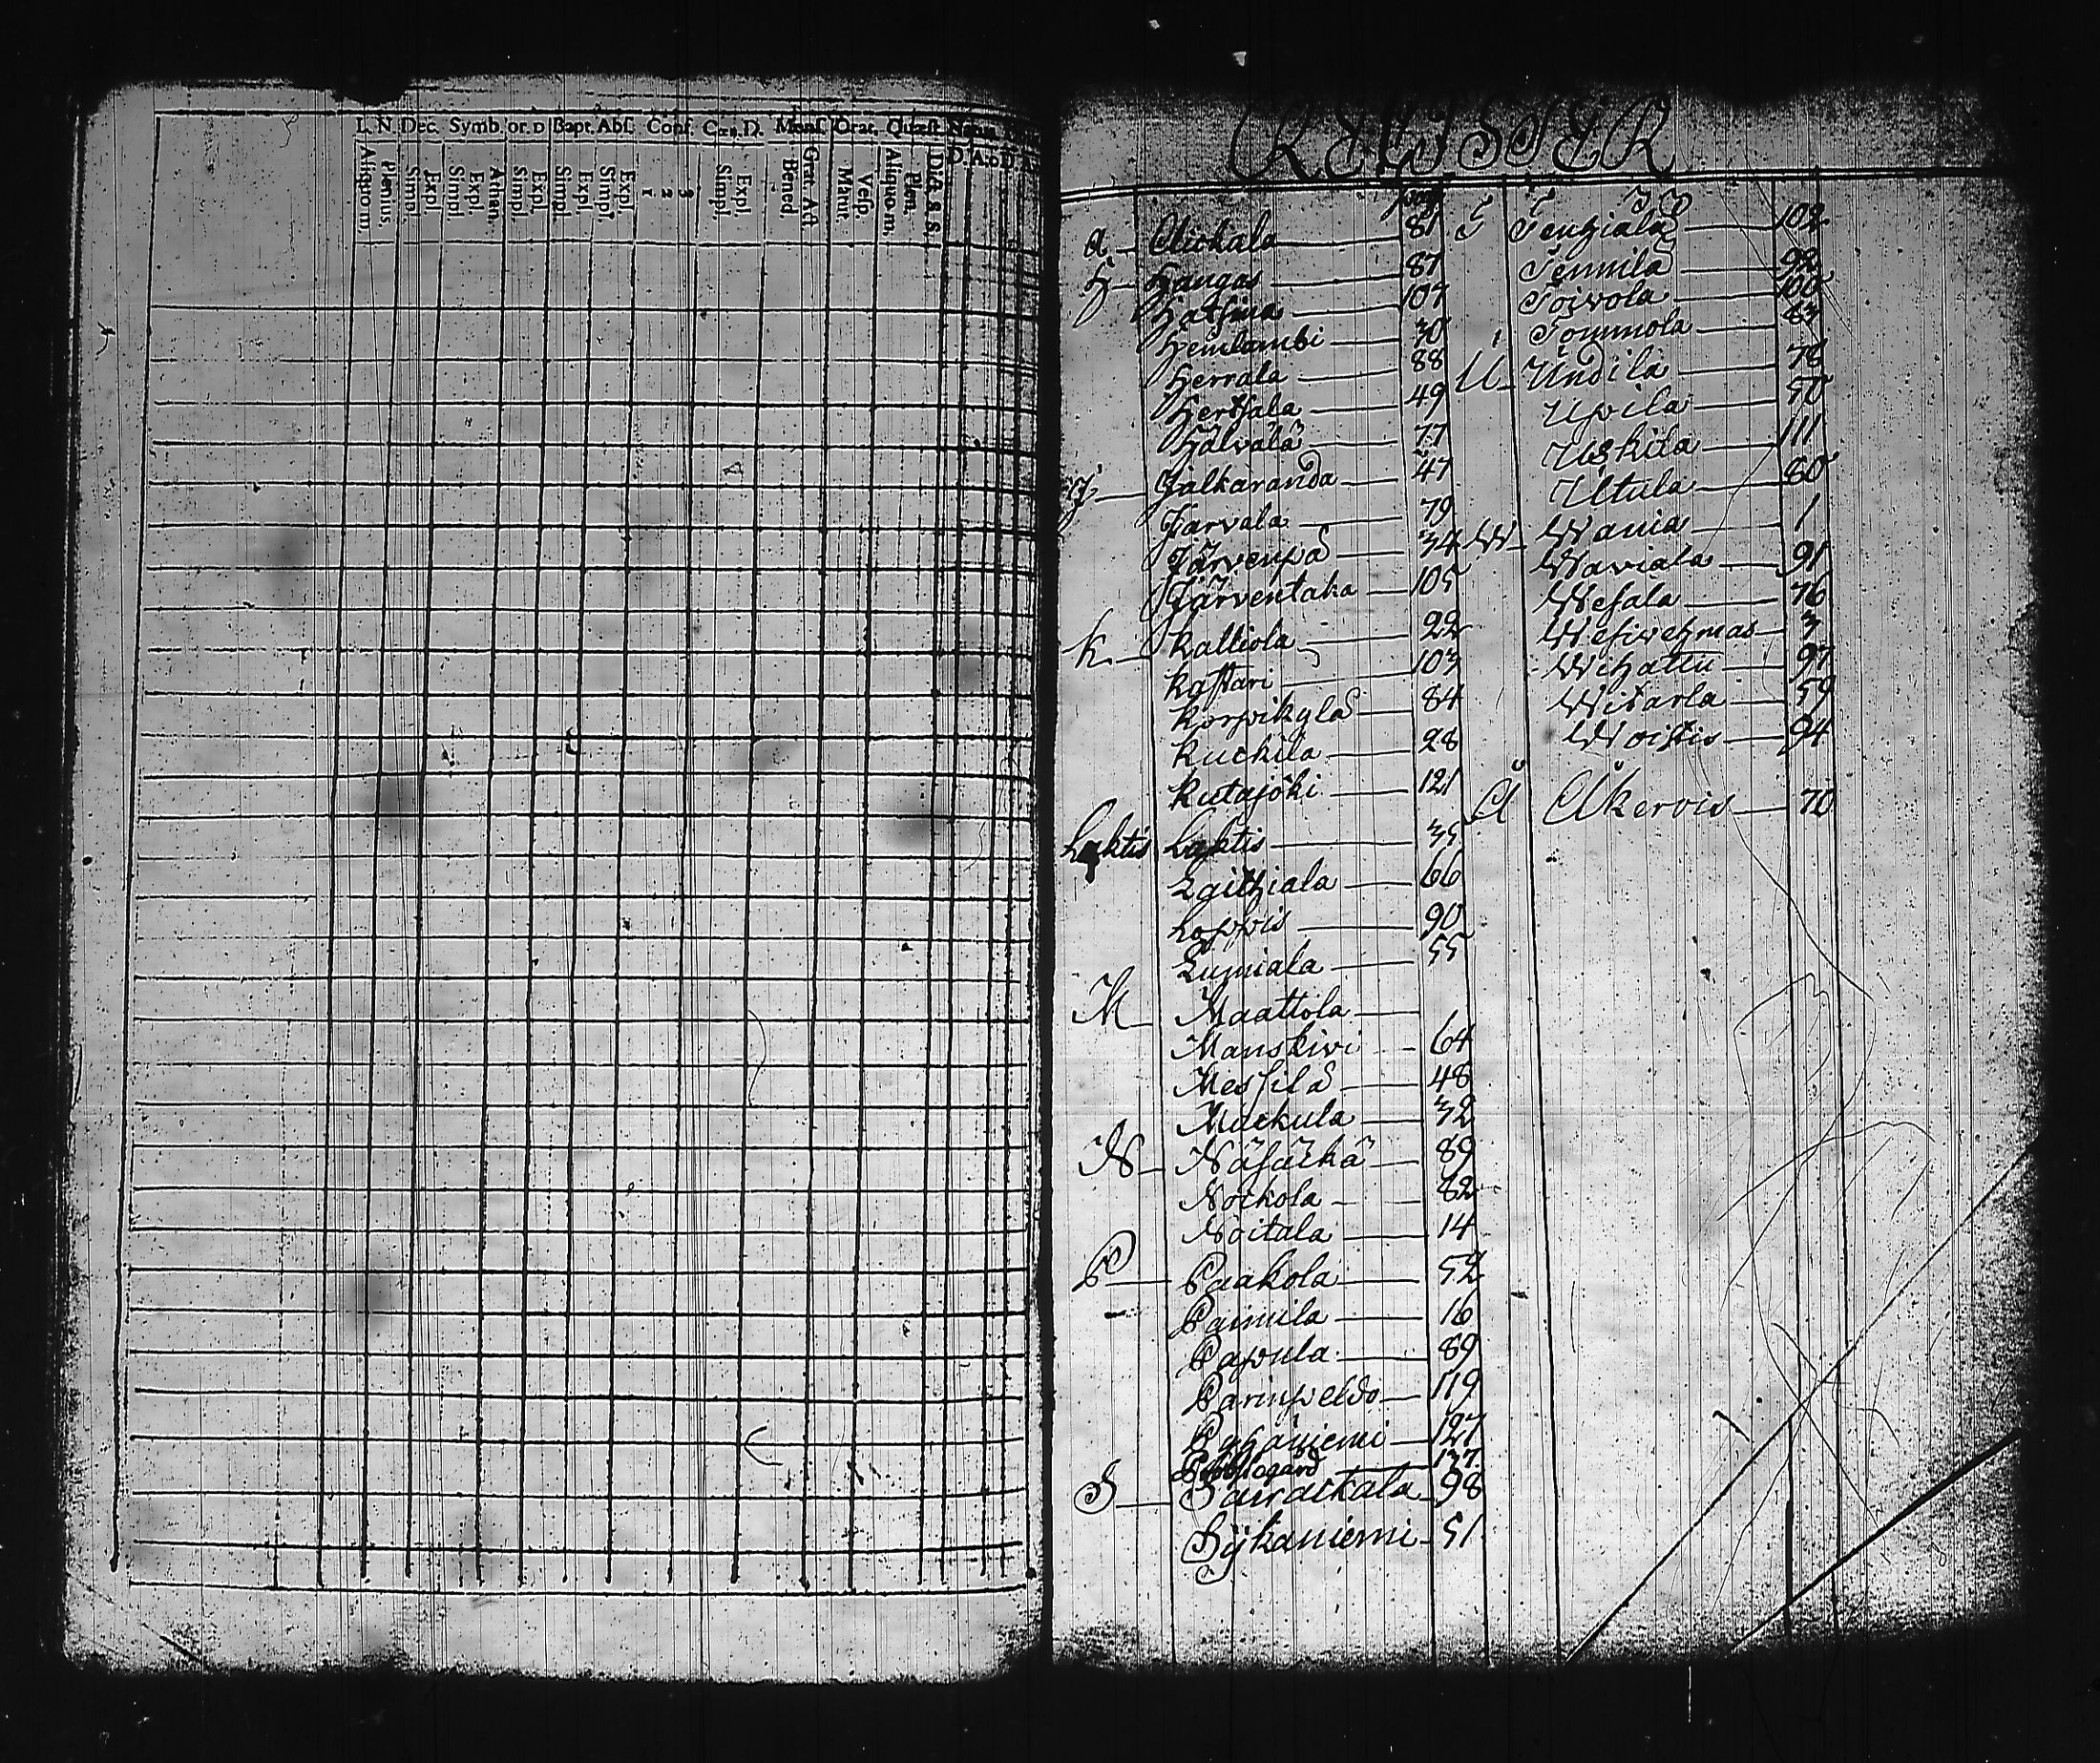 L. N. Dec. Symb. or. D Bapt. Abs. Conf. Cæn. D. Mens. Orat. Quæst
Aliqo m. Plenius. Simpl. Expl. Simpl. Expl. Athan. Simpl. Expl. Simpl. Expl. Simpl Expl. 1 2 3 Simpl. Expl. Bened. Grat. Act Matut. Vesp. Aliquo. m. Plen. Dict. S. S.
REGISTER
pag
A Aickala 81
H Hangas 87
Hatsina 107
Heinlambi 30
Herrala 88
Hertsala 49
Hälvälä 77
J Jalkaranda 47
Jarvala 79
Järvenpä 34
Järventaka 105
K Kalliola 22
Kastari 103
Korpikylä 84
Kuckila 28
Kutajoki 121
Laktis Laktis 35
Laitziala 66
Loppis 90
Lumiala 55
M Maattola
Manskivi 64
Messilä 48
Muckula 32
N Näsäckä 89
Nockola 82
Noitala 14
P Paakola 52
Paimila 16
Papula 89
Parinpeldo 119
Pyhäniemi 127
137
S Sairackala 98
Sykaniemi 51
T Tengiala 102
Tennilä 92
Toivola 100
Tommola 83
U Undila 78
Upila 50
Uskila 111
Utula 80
W Wania 1
Waviala 91
Wesala 76
Wesivehmas 3
Wihattu 97
Witarla 59
Woistis 94
Å Åkerois 70